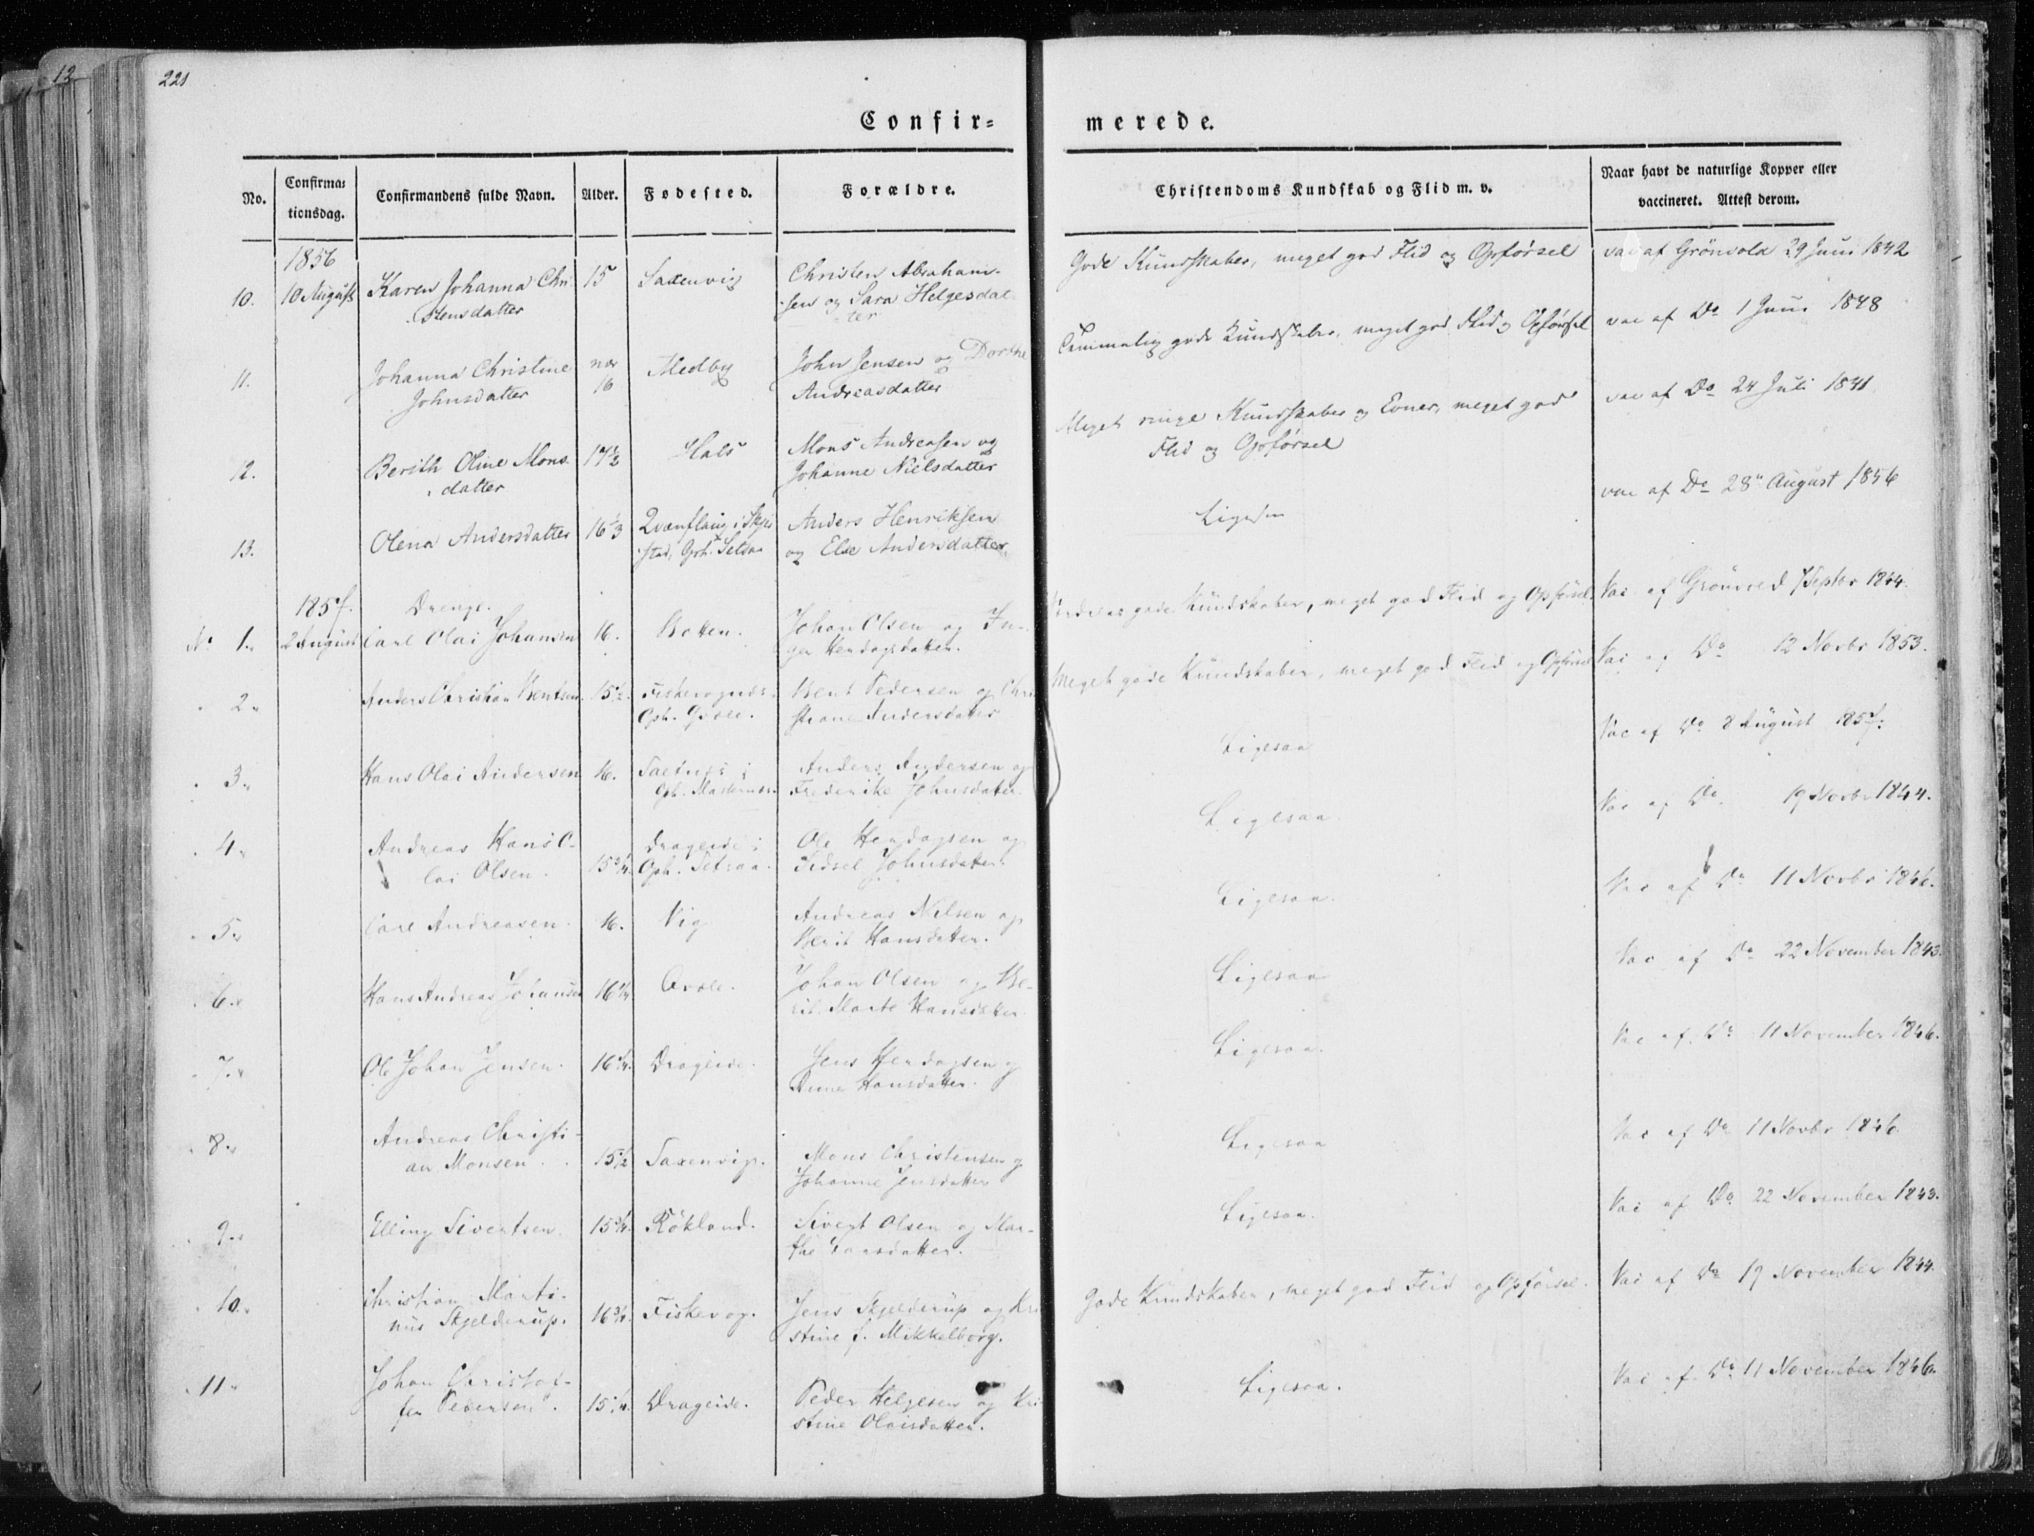 12
221
Confir= merede.
No.
Confirma=
tionsdag.
Confirmandens fulde Navn.
Alder.
Fødested.
Forældre.
Christendoms Kundskab og Flid m. v.
Naar havt de naturlige Kopper eller
vaccineret. Attest derom.
1856
10. 10 August Karen Johanna Chri-
stensdatter
15
Saxenvig
Christen Abraham-
sen og Sara Helgesdat-
ter
Gode Kundskaber, meget god Flid og Opførsel
vac af Grönvold 29 Juni 1842
11.
Johanna Christine
Johnsdatter
nær
16
Medby
John Jensen og Dorthe
Andreasdatter
Temmelig gode Kundskaber, meget god Flid og Opførsel
vac af Do 1 Juni 1848
12.
Berith Oline Mons-
datter
17½
Hals
Mons Andreasen og
Johanne Nielsdatter
Meget ringe Kundskaber og Evner, meget god
Flid og Opførsel
vac af Do 24 Juli 1841
13.
Olena Andersdatter
16⅓
i Skjer
stad, Oph. Setsaa
Anders Henriksen
og Else Andersdatter
Ligesaa
vac af Do 28 August 1856
1857.
Drenge.
No 1. 2 August Carl Olai Johansen
16.
Botten.
Johan Olsen og In-
ger Hendagsdatter.
gode Kundskaber, meget god Flid og Opførsel
Vac af Grönvold 7 Septbr 1844.
2.
Anders Christian Bentsen
15½.
Oph.
Bent Pedersen og Chri
stiane Andersdatter
Meget gode Kundskaber, meget god Flid og Opførsel
Vac af Do 12 Novbr 1853.
3.
Hans Olai Andersen
16.
Anders Andersen og
Frederike Johnsdatter
Ligesaa
Vac af Do 8 August 1857.
4.
Andreas Hans O-
lai Olsen.
15¾.
Drageide i
Oph. Setsaa.
Ole Hendagsen og
Sidsel Johnsdatter.
Ligesaa.
Vac af Do 19 Novbr 1844.
5.
Carl Andreasen.
16.
Vig
Andreas Nilsen og
Berit Hansdatter.
Ligesaa.
Vac af Do 11 Novbr 1846.
6.
Hans Andreas Johansen
16¼.
Johan Olsen og Be-
rit Marte Hansdatter.
Ligesaa
Vac af Do 22 November 1843.
7.
Ole Johan Jensen.
16¼.
Drageide.
Jens Hendagsen og
Anne Hansdatter.
Ligesaa.
Vac af Do 11 November 1846.
8.
Andreas Christi-
an Monsen.
15½
Saxenvig.
Mons Christensen og
Johanne Jensdatter
Ligesaa
Vac af Do 11 Novbr 1846.
9.
Elling Sivertsen.
15¾.
Rökland.
Sivert Olsen og Mar-
the Larsdatter.
Ligesaa.
Vac af Do 22 November 1843.
10.
Christian Marti-
nus Skjelderup.
16¾.
Fiskevog.
Jens Skjelderup og Kri
stine f. Mikkelborg.
Gode Kundskaber, meget god Flid og Opførsel.
Vac af Do 19 November 1844.
11.
Johan Christof-
fer Pedersen.
15¼.
Drageide.
Peder Helgesen og Kri
stine Olaisdatter.
Ligesaa.
Vac af Do 11 November 1846.